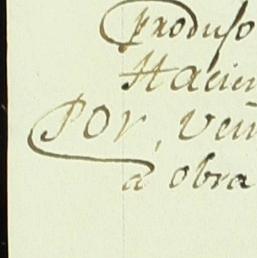 produſo
Hacien
POr, Vein
à obra